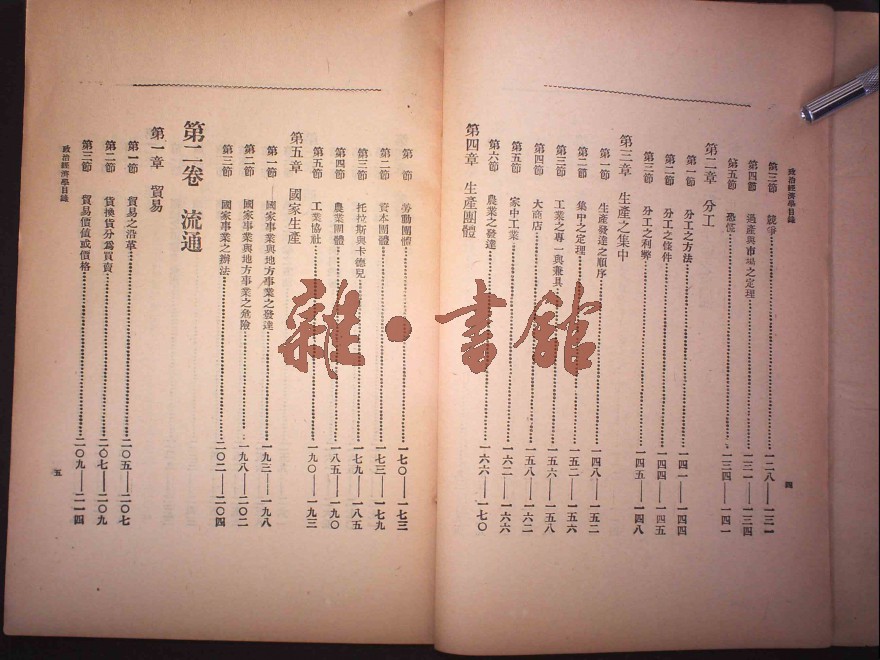 政治經濟學目錄
第三節　競爭……一二八——一三一
第四節　過產與市場之定理……一三一——一三四
第五節　恐慌……一三四——一四一
第二章　分工
第一節　分工之方法……一四一——一四四
第二節　分工之條件……一四四——一四五
第三節　分工之利弊……一四五——一四八
第三章　生產之集中
第一節　生產發達之順序……一四八——一五二
第二節　集中之定理……一五二——一五六
第三節　工業之專一與兼具……一五六——一五八
第四節　大商店……一五八——一六二
第五節　家中工業……一六二——一六六
第六節　農業之發達……一六六——一七〇
第四章　生產團體
四
第　節　勞動團體……一七〇——一七三
第二節　資本團體……一七三——一七九
第三節　托拉斯與卡德兒……一七九——一八五
第四節　農業團體……一八五——一九〇
第五節　工業協社……一九〇——一九三
第五章　國家生產
第一節　國家事業與地方事業之發達……一九三——一九八
第二節　國家事業與地方事業之危險……一九八——二〇二
第三節　國家事業之辦法……二〇二——二〇四
第二卷　流通
第一章　貿易
第一節　貿易之沿革……二〇五——二〇七
第二節　貨換貨分為買賣……二〇七——二〇九
第三節　貿易價值或價格……二〇九——二一四
政治經濟學目錄
五
雜·書館